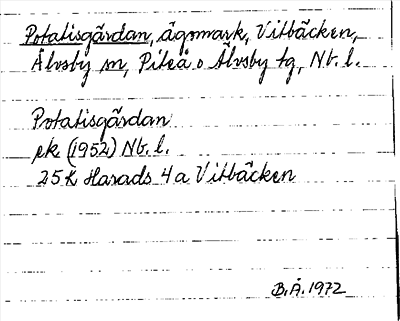 Potatisgårdan, ägomark, Vitbäcken,
Älvsby sn, Piteå o Älvsby tg, Nb. l.
Potatisgårdan
ek (1952) Nb. l.
25K Harads 4a Vitbäcken
B.Å. 1972